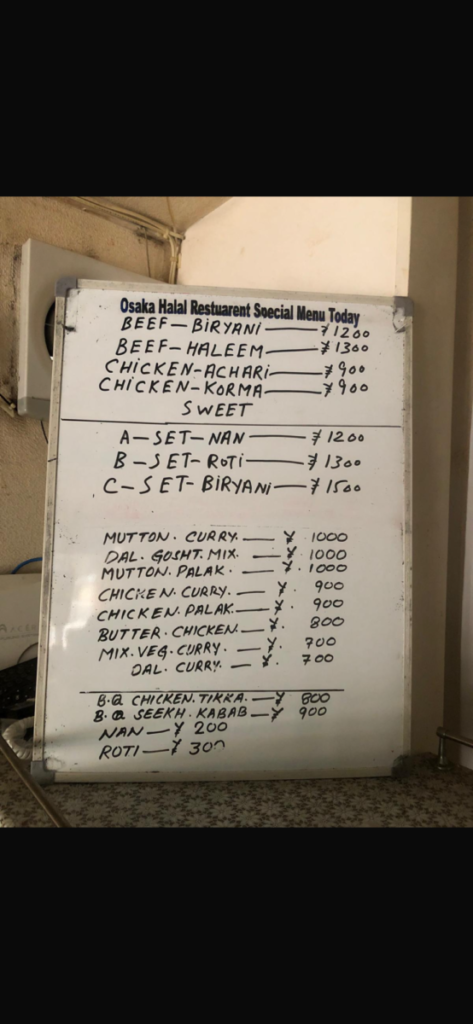 Osaka Halal Restuarent Special Menu Today
BEEF—BIRYANI——¥1200
BEEF—HALEEM——¥1300
CHICKEN-ACHARI——¥900
CHICKEN-KORMA——¥900
SWEET
A—SET—NAN——¥1200
B—SET-ROTI——¥1300
C—SET-BIRYANI—¥1500
MUTTON. CURRY.—¥ 1000
DAL. GOSHT. MIX. —¥ 1000
MUTTON. PALAK. —¥. 1000
CHICKEN. CURRY. —¥. 900
CHICKEN. PALAK.—¥. 900
BUTTER. CHICKEN.—¥. 800
MIX. VEG. CURRY. —¥. 700
DAL. CURRY. —¥. 700
B.Q CHICKEN. TIKKA.—¥ 800
B.Q SEEKH. KABAB—¥ 900
NAN—¥ 200
ROTI—¥ 300